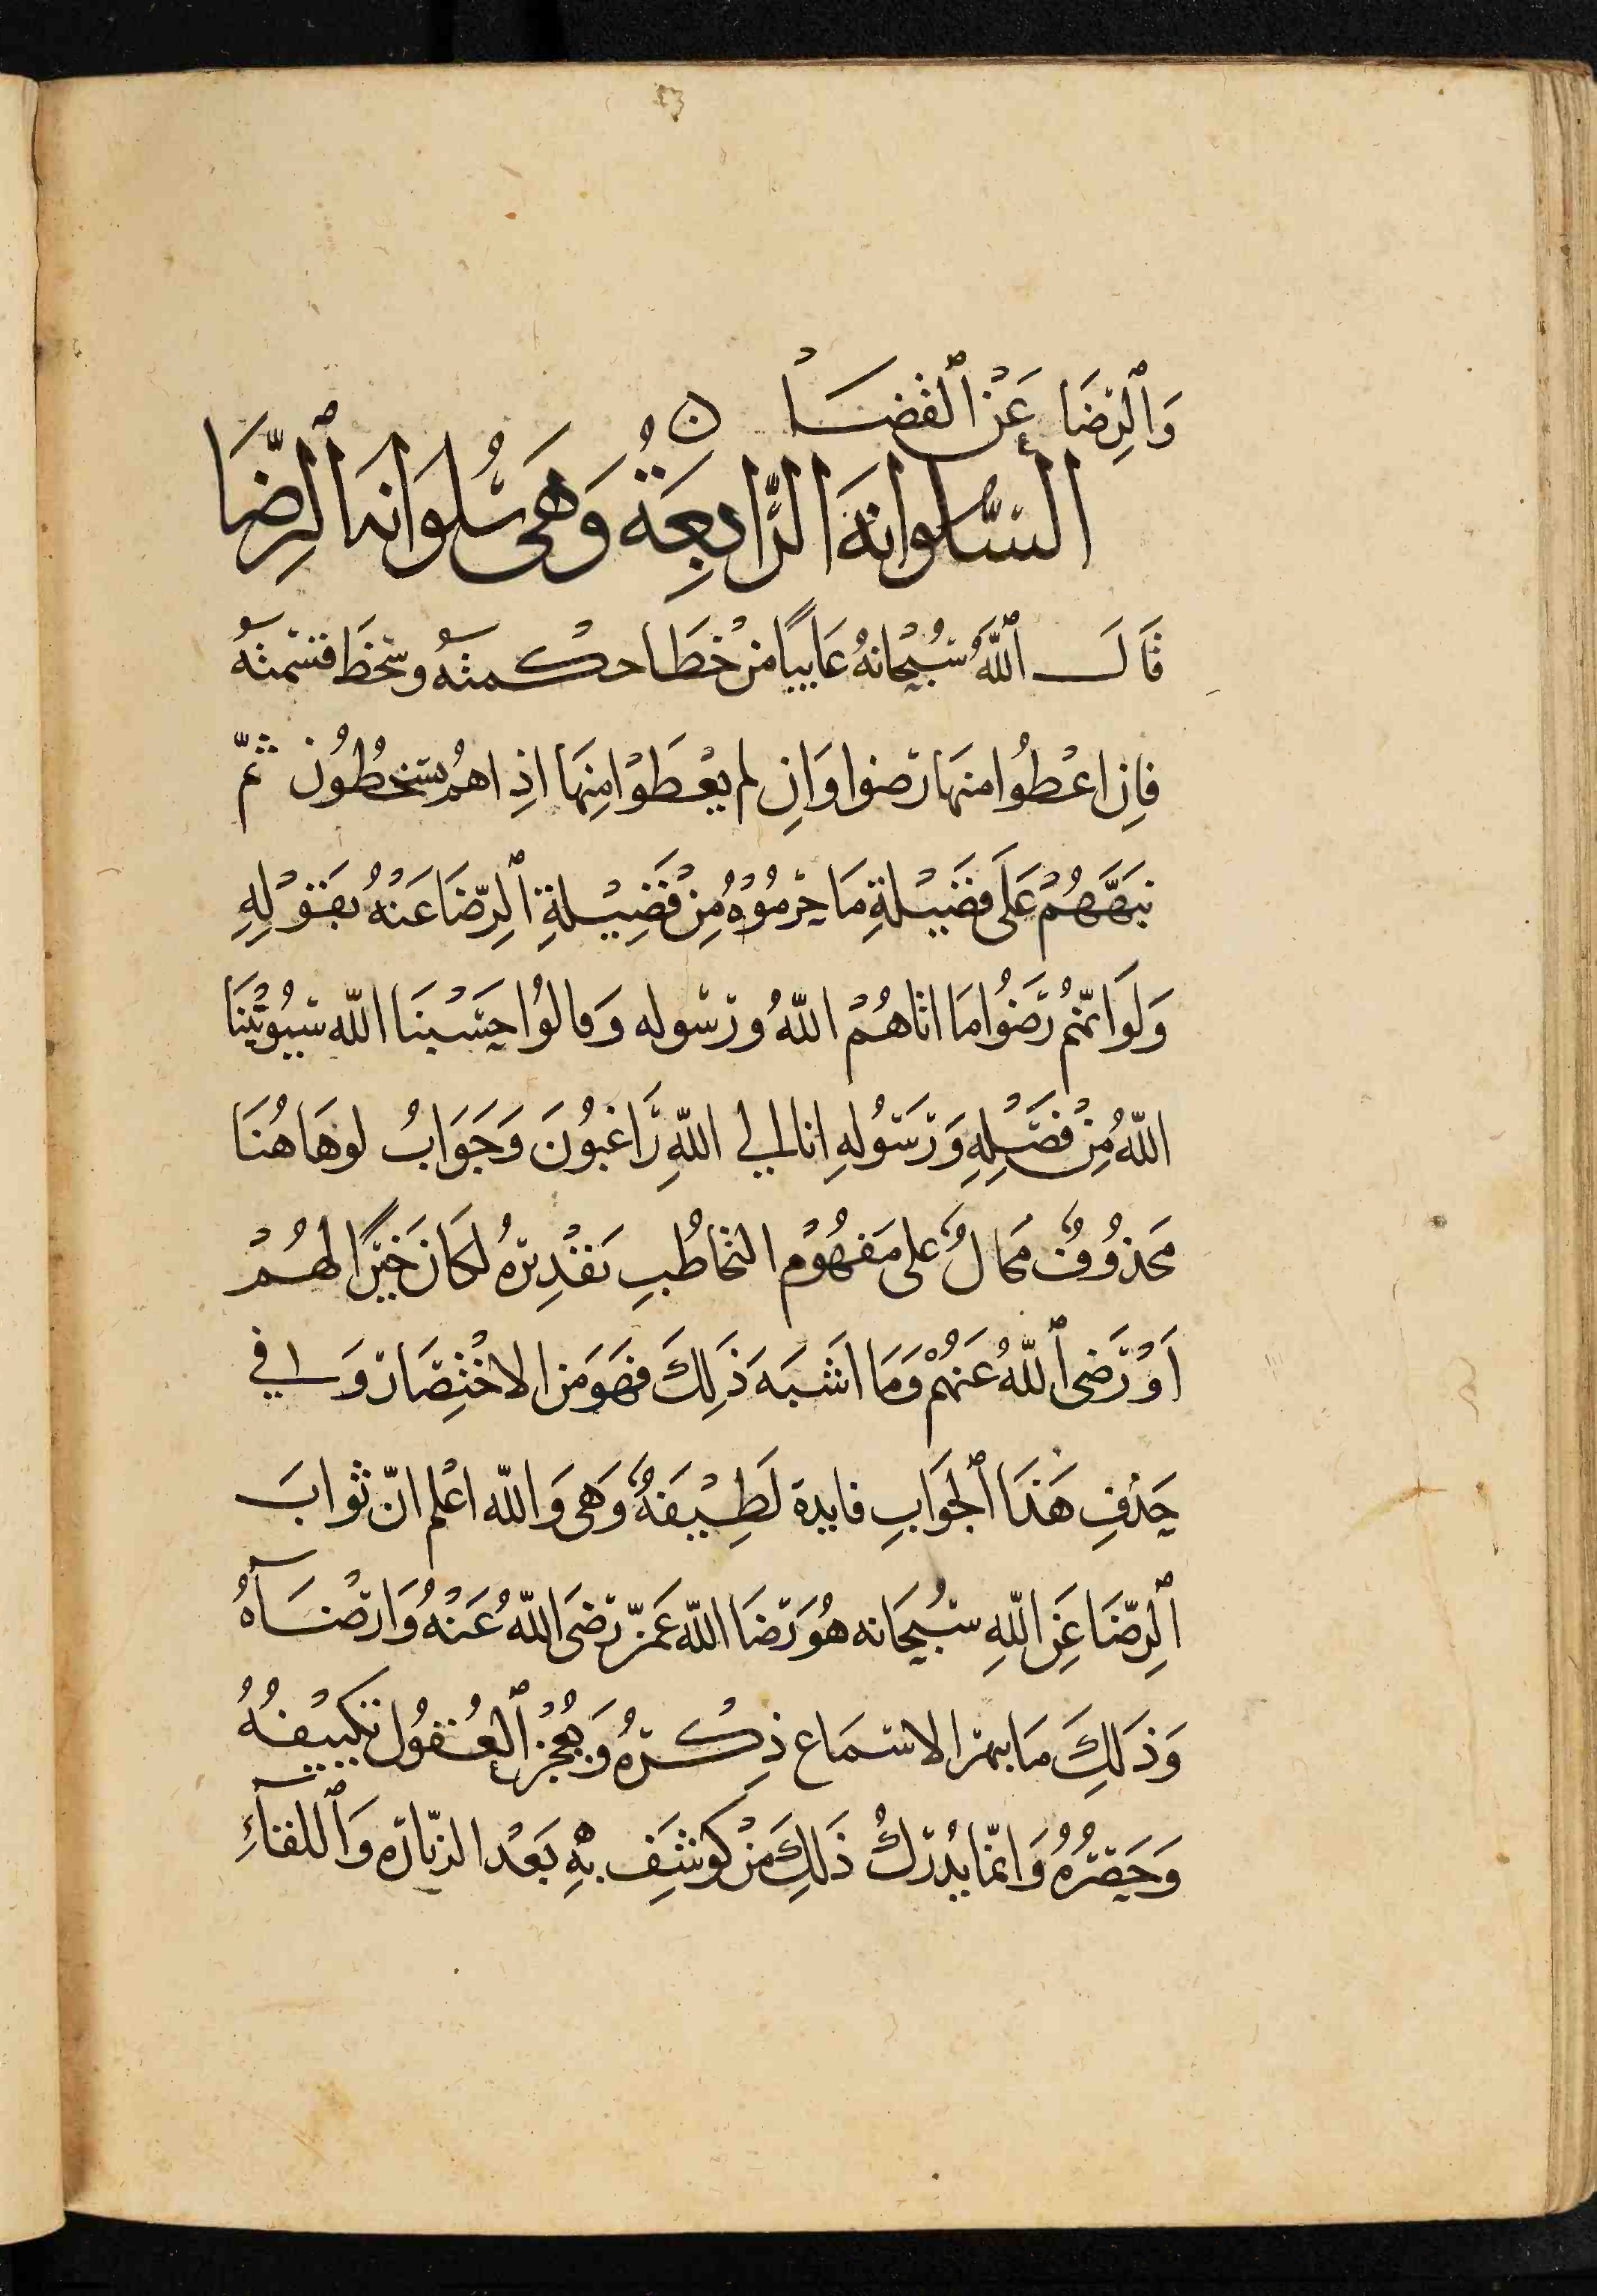 وَالرِّضَا عَنِ القضَا ن
السّلوانة الرَّابعَةُ وَهى سُلوَانة الرِّضَا
قَالَ اللّهُ سُبْحانهُ عَايبًا منْ خطَا حكْمتهُ وسَخطَ قسْمتهُ
فاِن اعْطُوا منهَا رضوا وَاِن لم يعْطَوْا مِنهَا اذِا هُمْ يسْخطُونْ ثمّ
نبَهَّهُمْ عَلَى فضَيْلةِ مَا حرمُوْهُ مِنْ فَضِيْلةِ الرِّضَا عَنْهُ بقَوْلِهِ
وَلوَ انّهُم رَضُوا مَا اتاهُمْ اللّهُ ورسُوله وَقالوُا حَسْبنَا اللّه سَيوُتْينَا
اللّهُ مِنْ فضْلِهِ وَرَسُولهِ انا الي اللّهِ رَاغبوُنَ وَجَوَابُ لوهَاهُنَا
مَحذوُفٌ مَحالٌ على مَفهُوْم التخاطُبِ تقْدِيرهُ لكَان خَيْرًا لهُمْ
اَوْ رَضى اللّهُ عَنهُمْ وَمَا اشبَه ذَلِكَ فهَو مَن الاخْتِصَار وَ في
حَذفِ هَذَا الجَوَابِ فايدة لَطِيْفةٌ وَهى وَاللّه اعْلم انّ ثوابَ
الرِّضَا عَنِ اللّهِ سُبْحَانه هُوَ رَضَا اللّه عَمّن رَضىَ اللّهُ عَنْهُ وَارْضَاهُ
وَذَلِكَ مَا يبهر الاسْمَاع ذِكْرهُ وَيعُجْز العُقوُل تكيْيفهُ
وَحَصْرُهُ وَانّما يُدْرَكُ ذَلِكَ مَنْ كُوشَفِ بهِ بَعْد الزيّارة وَاللقآءِ